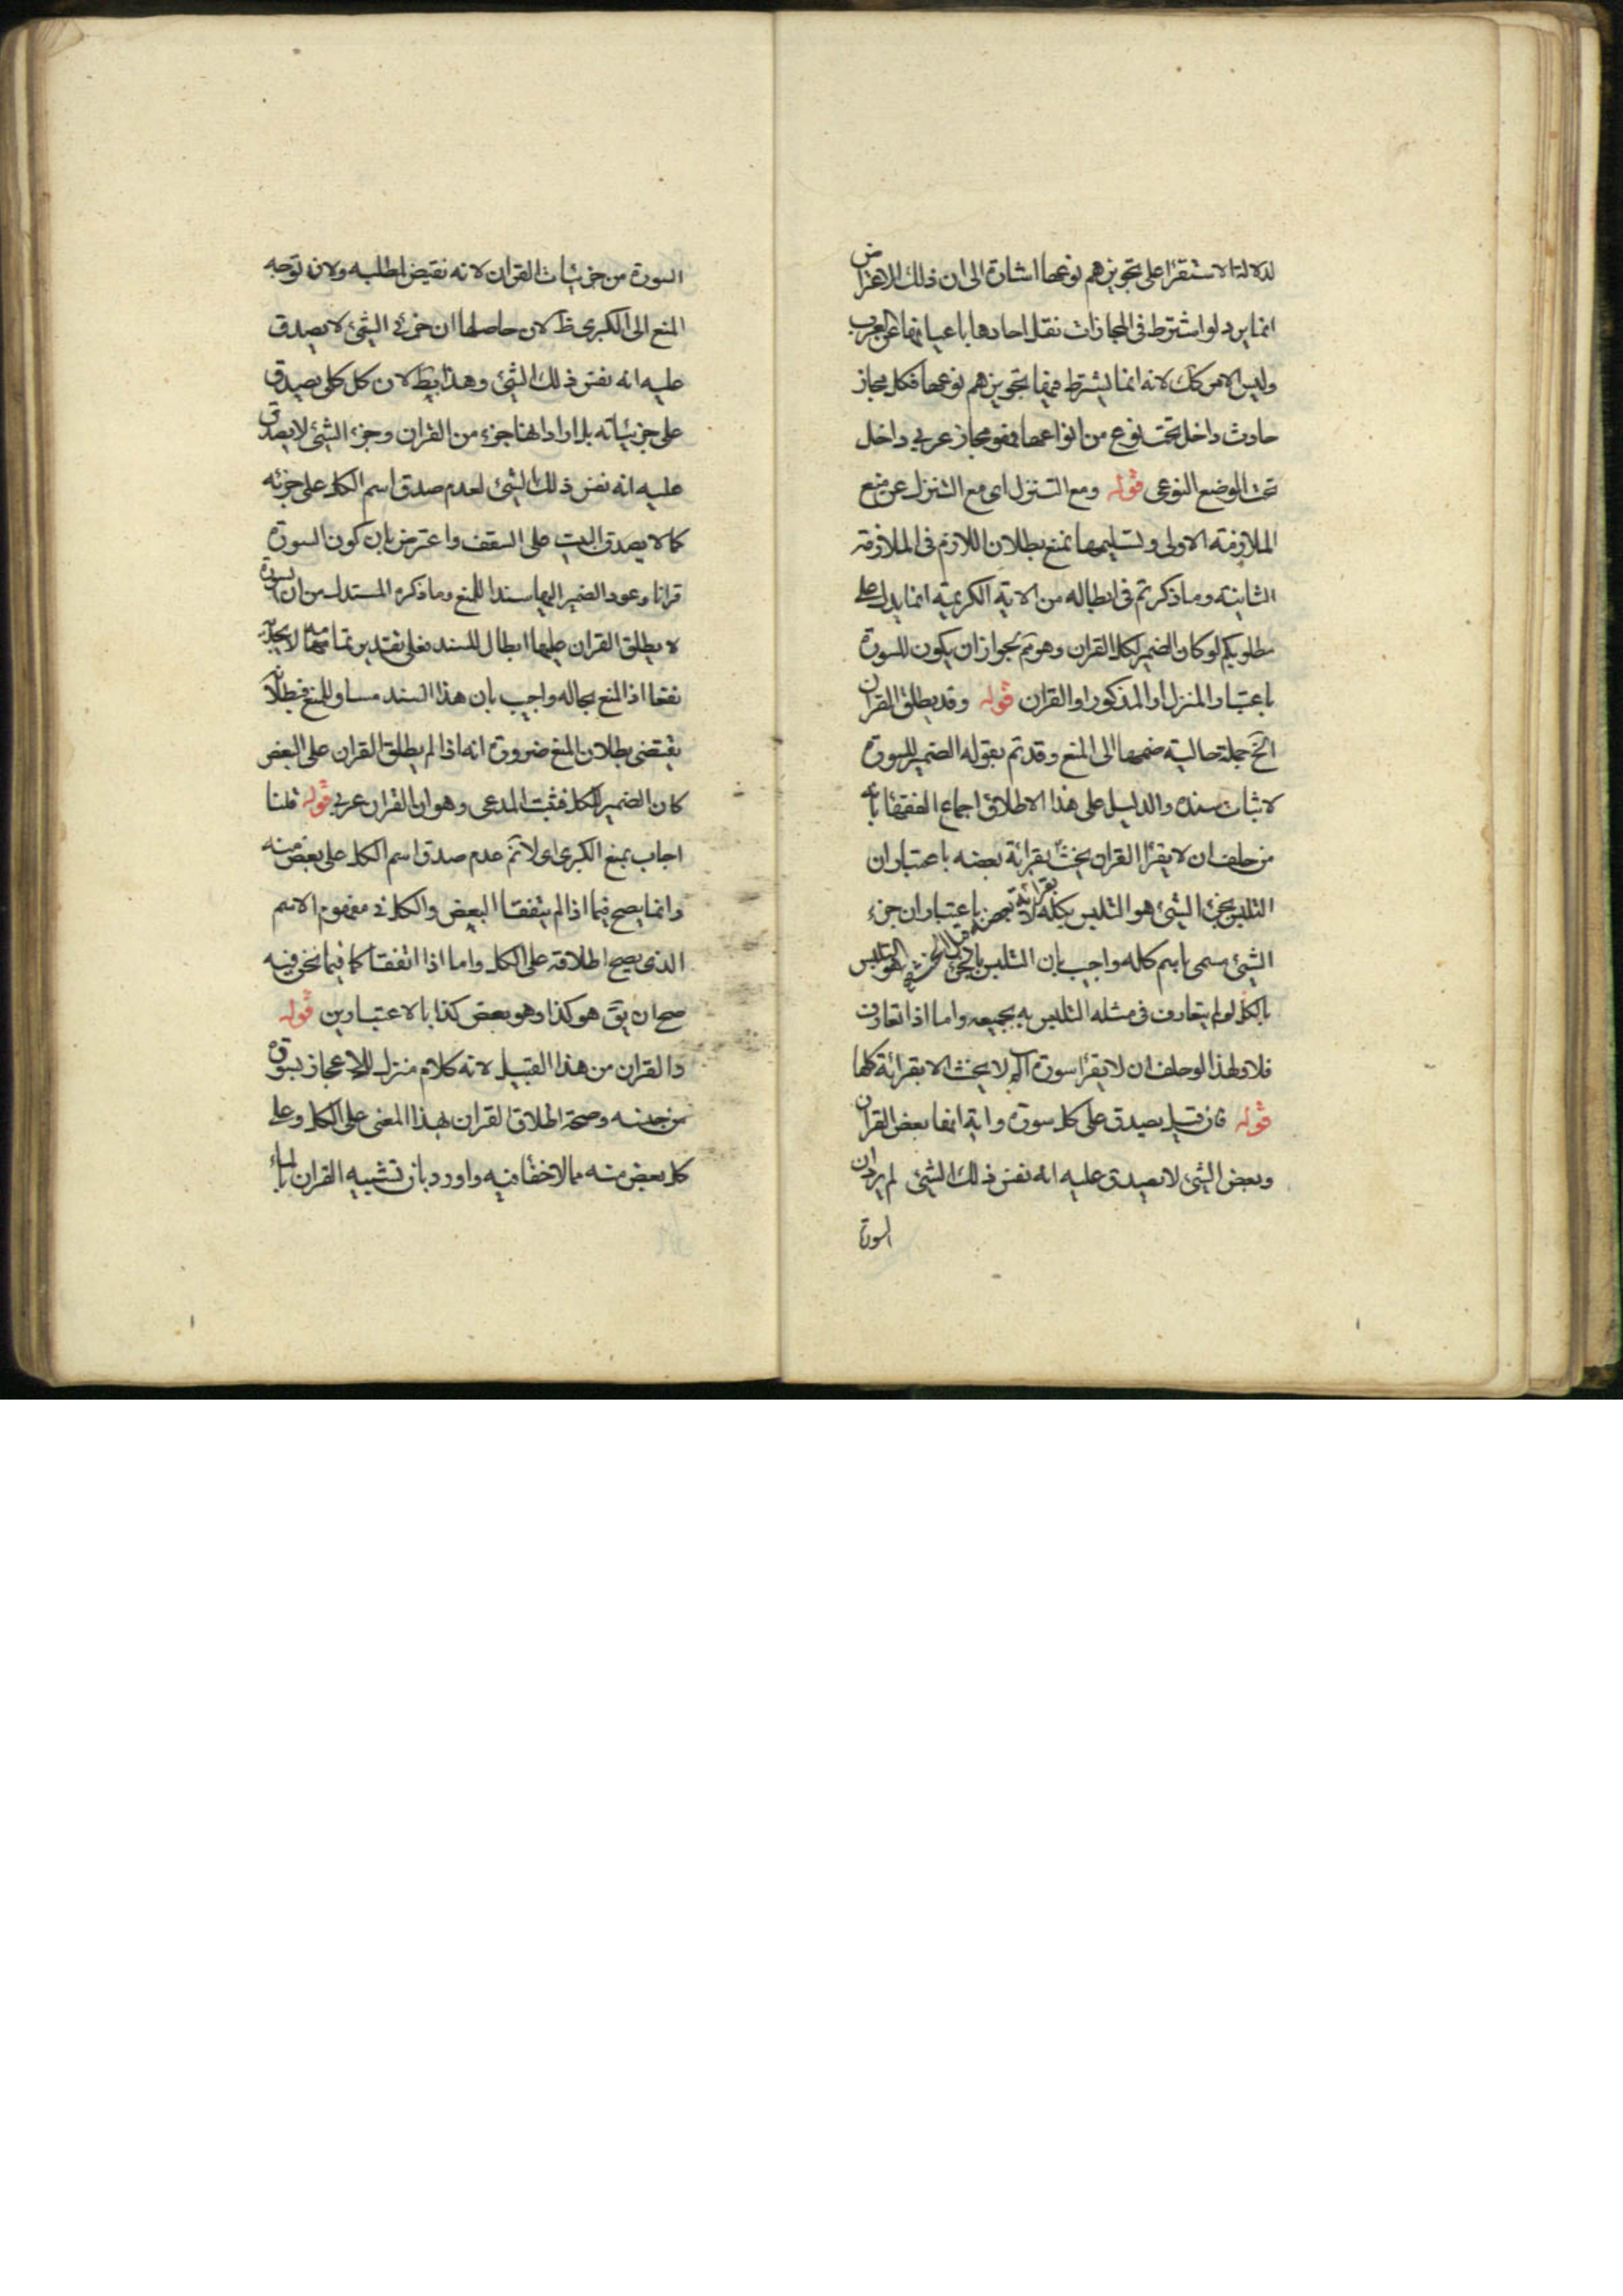 لدلالة الاستقرا على تجويزهم نوعها اشارة الى ان ذلك الاعتراض
انما يرد لو اشترط فى المجازات نقل احادها باعيانها عن العرب
وليس الامر كك لانه انما يشترط فيها تجويزهم نوعها فكل مجاز
حادث داخل تحت نوع من انواعها فهو مجاز عربي داخل
تحت الوضع النوعى قوله ومع التنزل اى مع التنزل عن منع
الملازمة الاولى وتسليمها نمنع بطلان اللازم فى الملازمة
الثانية وما ذكرتم فى ابطاله من الاية الكريمة انما يدل على
مطلوبكم لو كان الضمير لكل القران وهو مم لجواز ان يكون للسورة
باعتبار المنزل او المذكور او القران قوله وقد يطلق القران
الخ جملة حالية ضمها الى المنع وقد تم بقوله الضمير للسورة
لاثبات سنده والدليل على هذا الاطلاق اجماع الفقها بانه
من حلف ان لا يقرأ القران يحنث بقرائة بعضه باعتبار ان
التلبس بجزئ الشئ هو التلبس بكله لا بقرائة بعضه باعتبار ان جزء
الشئ مسمى باسم كله واجيب بان التلبس بالجزئ هو التلبس
بالكل لو لم يتعارف فى مثله التلبس به بجميعه واما اذا تعارف
فلا ولهذا لو حلف ان لا يقرأ سورة لا يحنث الا بقرائة كلها
قوله فان قيل يصدق على كل سورة واية انها بعض القران
وبعض الشئ لا يصدق عليه انه نفس ذلك الشئ لم يرد ان
السورة
السورة من جزئيات القران لانه نقيض لمطلبه ولان توجه
المنع الى الكبرى ظ لان حاصلها ان جزئى الشئ لا يصدق
عليه انه نفس ذلك الشئ وهذا بط لان كل كلى يصدق
على جزئياته بل اراد انها جزء من القران وجزء الشئ لا يصدق
عليه انه نفس ذلك الشئ لعدم صدق اسم الكل على جزئه
كما لا يصدق البيت على السقف واعترض بان كون السورة
قرانا وعود الضمير اليها سند للمنع وما ذكره المستدل من ان السورة
لا يطلق القران عليها ابطال للسند فعلى تقدير تمامه لا يجديه
نفعا اذ المنع بحاله واجيب بان هذا السند مساو للمنع فبطلانه
يقتضى بطلان المنع ضرورة انه اذا لم يطلق القران على البعض
كان الضمير للكل فثبت المدعى وهو ان القران عربي قوله قلنا
اجاب بمنع الكبرى اى لا نم عدم صدق اسم الكل على بعض منه
وانما يصح فيما اذا لم يتفقا البعض والكل فى مفهوم الاسم
الذى يصح اطلاقه على الكل واما اذا اتفقتا كما فيما نحن فيه
صح ان يق هو كذا وهو بعض كذا بالاعتبارين قوله
والقران من هذا القبيل لانه كلام منزل للاعجاز بسورة
من جنسه وصحة اطلاق القران بهذا المعنى على الكل وعلى
كل بعض منه مما لا خفا فيه واورد بان تشبيه القران بالماء